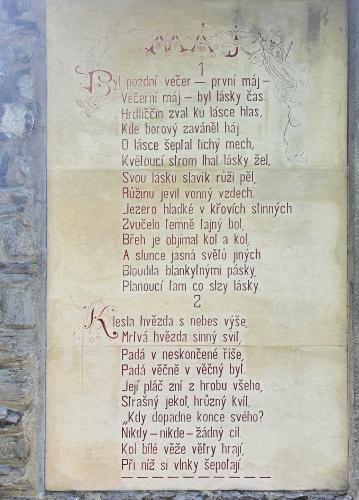 MÁJ
1
Byl pozdní večer – první máj –
Večerní máj – byl lásky čas.
Hrdliččin zval ku lásce hlas,
Kde borový zaváněl háj.
O lásce šeptal tichý mech,
Květoucí strom lhal lásky žel,
Svou lásku slavík růži pěl,
Růžinu jevil vonný vzdech.
Jezero hladké v křovích stinných
Zvučelo temně tajný bol,
Břeh je objímal kol a kol,
A slunce jasná světů jiných
Bloudila blankytnými pásky,
Planoucí tam co slzy lásky.
2
Klesla hvězda s nebes výše,
Mrtvá hvězda sinný svit,
Padá v neskončené říše,
Padá věčně v věčný byt.
Její pláč zní z hrobu všeho,
Strašný jekot, hrůzný kvil.
„Kdy dopadne konce svého?
Nikdy – nikde – žádný cíl.
Kol bílé věže větry hrají,
Při níž si vlnky šepotají.